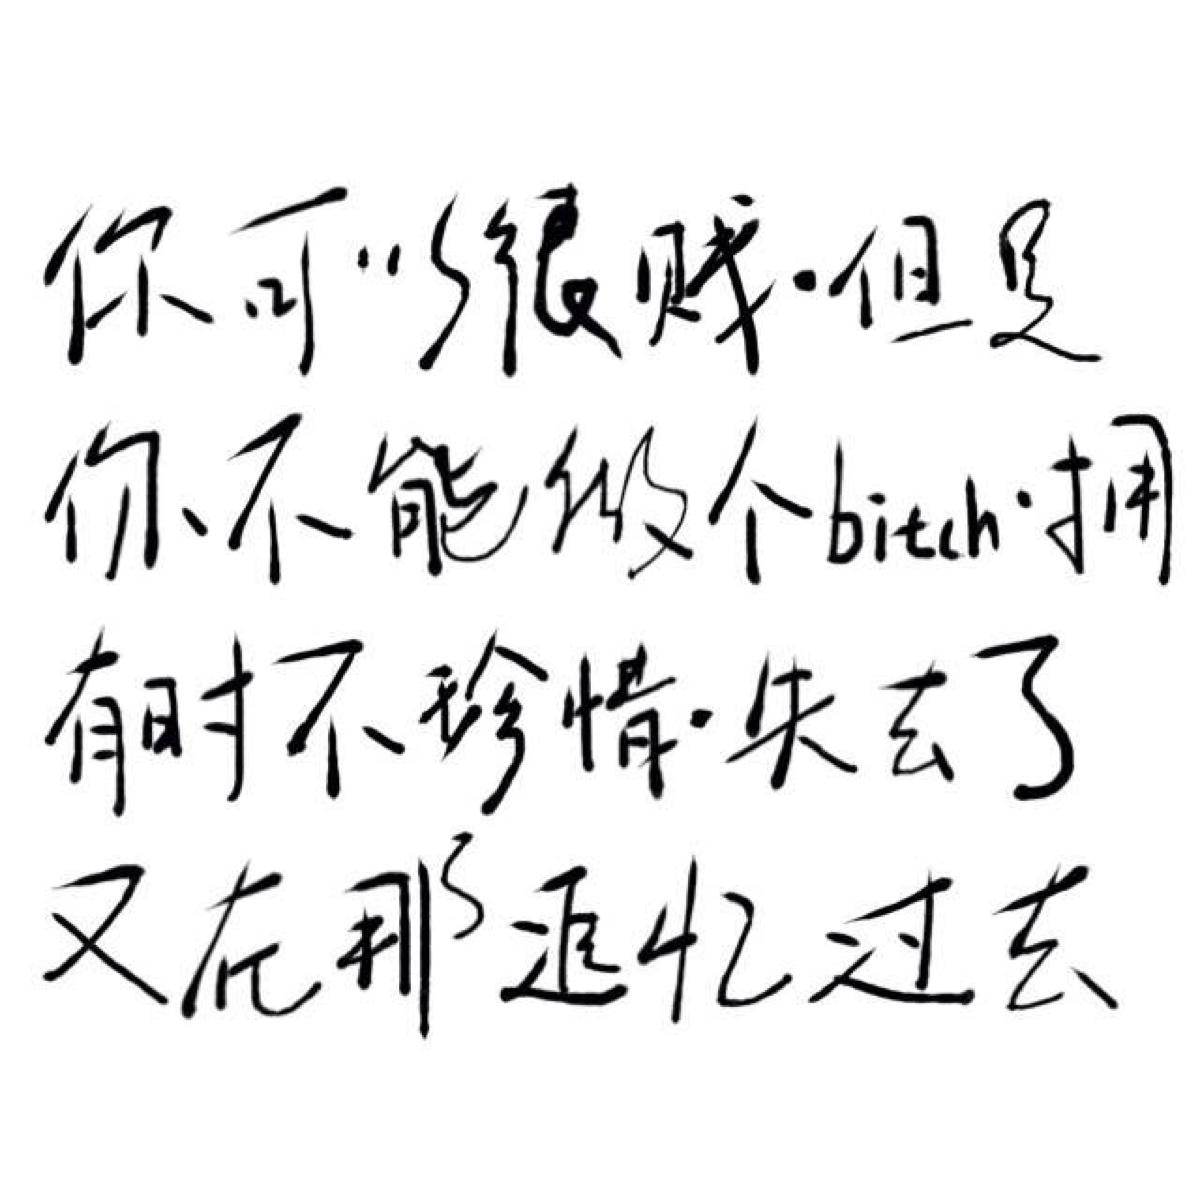 你可以很贱·但是
你不能做个bitch·拥
有时不珍惜·失去了
又在那追忆过去